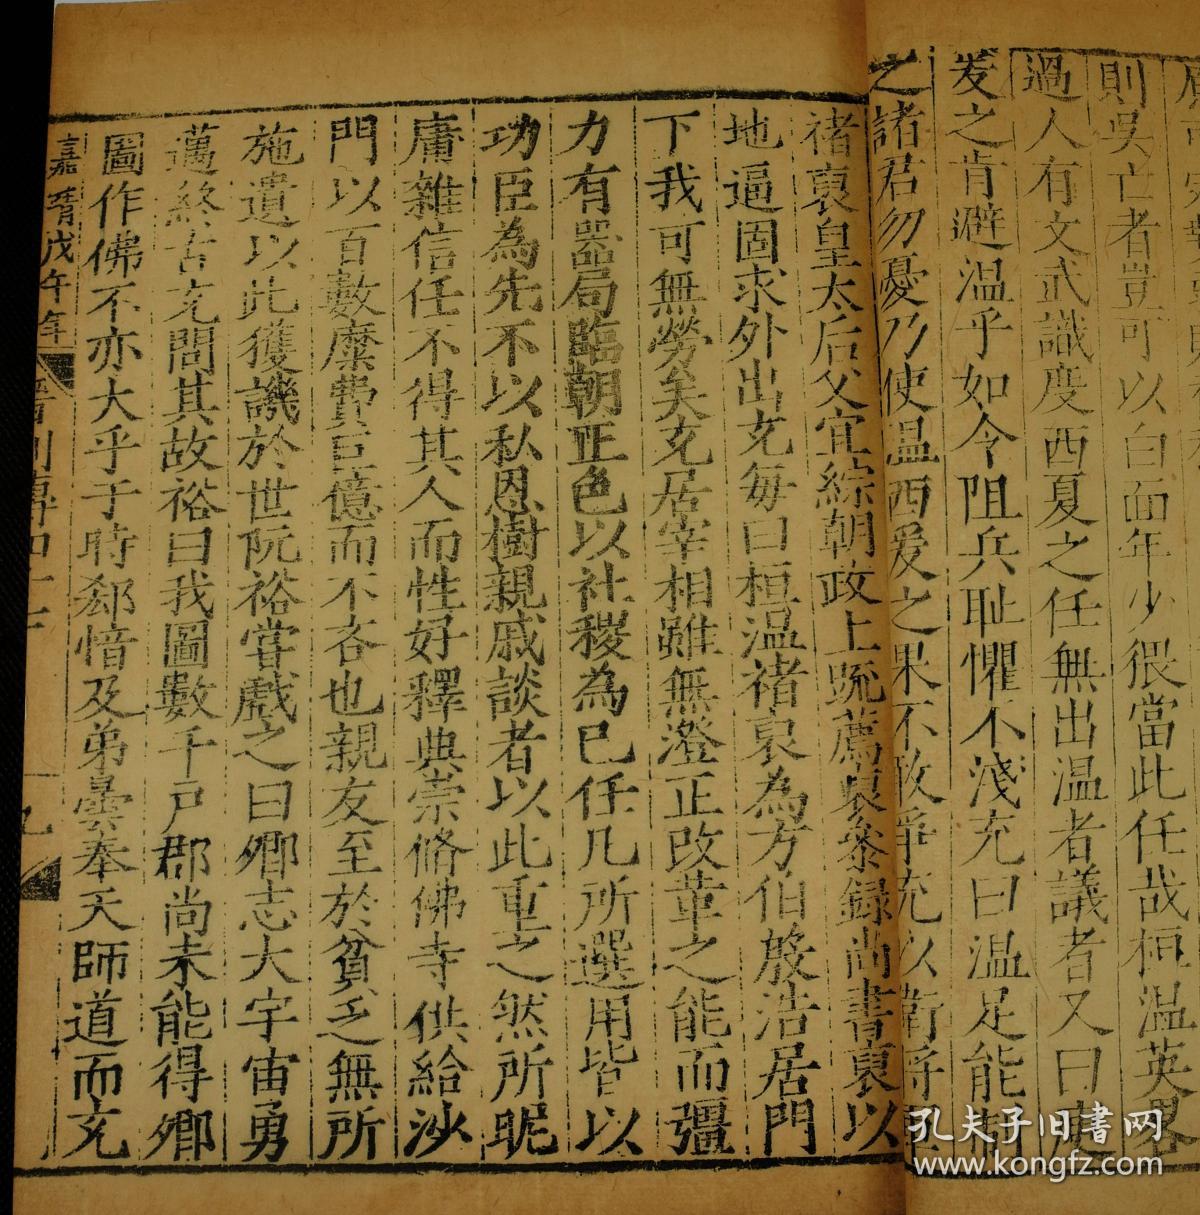 則吳亡者豈可以白面年少猥當此任哉桓温英畧
過人有文武識度西夏之任無出温者議者又曰庾
爰之肯避温乎如令阻兵耻懼不淺充曰温足能制
之諸君勿憂乃使温西爰之果不敢爭充以衛將軍
褚裒皇太后父宜綜朝政上疏薦裒叅録尚書裒以
地逼固求外出充每曰桓温褚裒為方伯殷浩居門
下我可無勞矣充居宰相雖無澄正改革之能而彊
力有器局臨朝正色以社稷為已任凡所選用皆以
功臣為先不以私恩樹親戚談者以此重之然所昵
庸雜信任不得其人而性好釋典崇脩佛寺供給沙
門以百數糜費巨億而不吝也親友至於貧乏無所
施遺以此獲譏於世阮裕嘗戲之曰卿志大宇宙勇
邁終古充問其故裕曰我圖數千戸郡尚未能得卿
圖作佛不亦大乎于時郄愔及弟曇奉天師道而充
嘉靖戊午年 晉列傳四十 九
孔夫子旧书网
www.kongfz.com